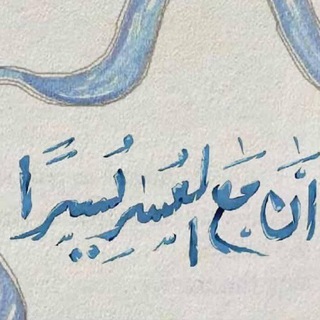 انَّ مَعَ العُسْرِ يُسْرًا